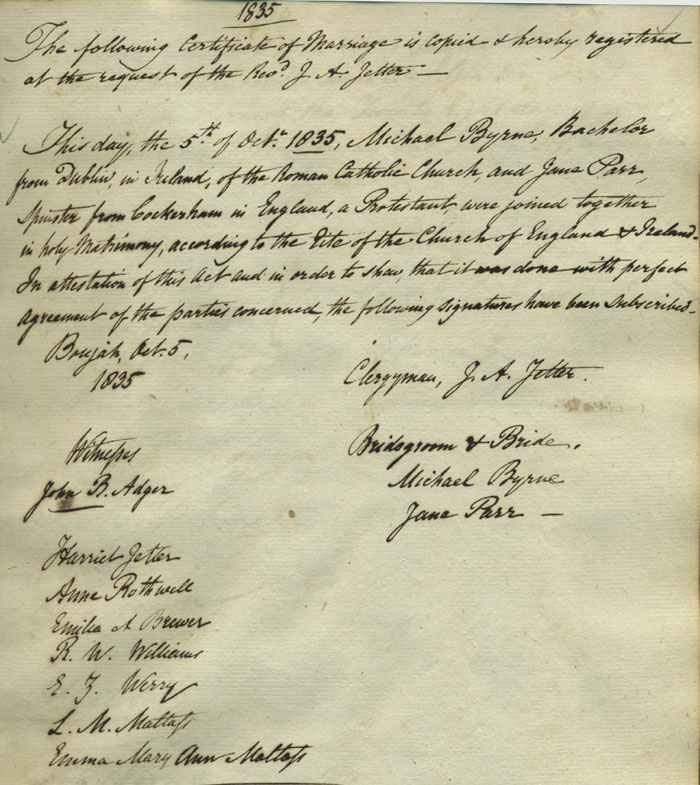 1835
The following Certificate of Marriage is copied & hereby registered
at the request of the Revd. J. A. Jetter —
This day, the 5th of Octr. 1835, Michael Byrne, Bachelor
from Dublin, in Ireland, of the Roman Catholic Church, and Jane Parr,
Spinster from Cockerham in England, a Protestant, were joined together
in holy Matrimony, according to the Rite of the Church of England & Ireland.
In attestation of this Act and in order to shew, that it was done with perfect
agreement of the parties concerned, the following signatures have been subscribed.
Boujah, Oct. 5,
1835
Clergyman, J. A. Jetter.
Witnesses
John B. Adger
Bridegroom & Bride.
Michael Byrne
Jane Parr —
Harriet Jetter
Anne Rothwell
Emilia A Brewer
R. W. Williams
E. Z. Werry
L. M. Maltass
Emma Mary Ann Maltass